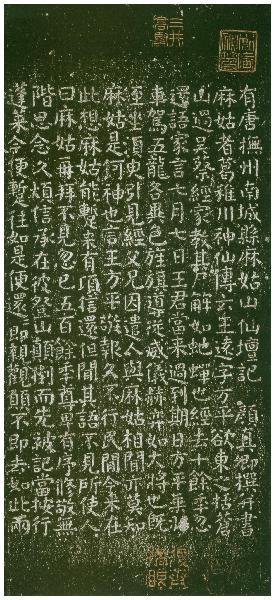 有唐撫州南城縣麻姑山仙壇記　顏真卿撰并書
麻姑者葛稚川神仙傳云王遠字方平欲東之括蒼
山過吳蔡經家教其尸解如虵蟬也經去十餘年忽
還語家言七月七日王君當來過到期日方平乘羽
車駕五龍各異色旌旗導從威儀赫弈如大將也既
至坐須臾引見經父兄因遣人與麻姑相聞亦莫知
麻姑是何神也言王方平敬報久不行民間今來在
此想麻姑能暫來有頃信還但聞其語不見所使人
曰麻姑再拜不見忽已五百餘年尊卑有序修敬無
階思念久煩信承在彼登山顛倒而先被記當按行
蓬萊今便暫往如是便還還即親觀願不即去如此兩